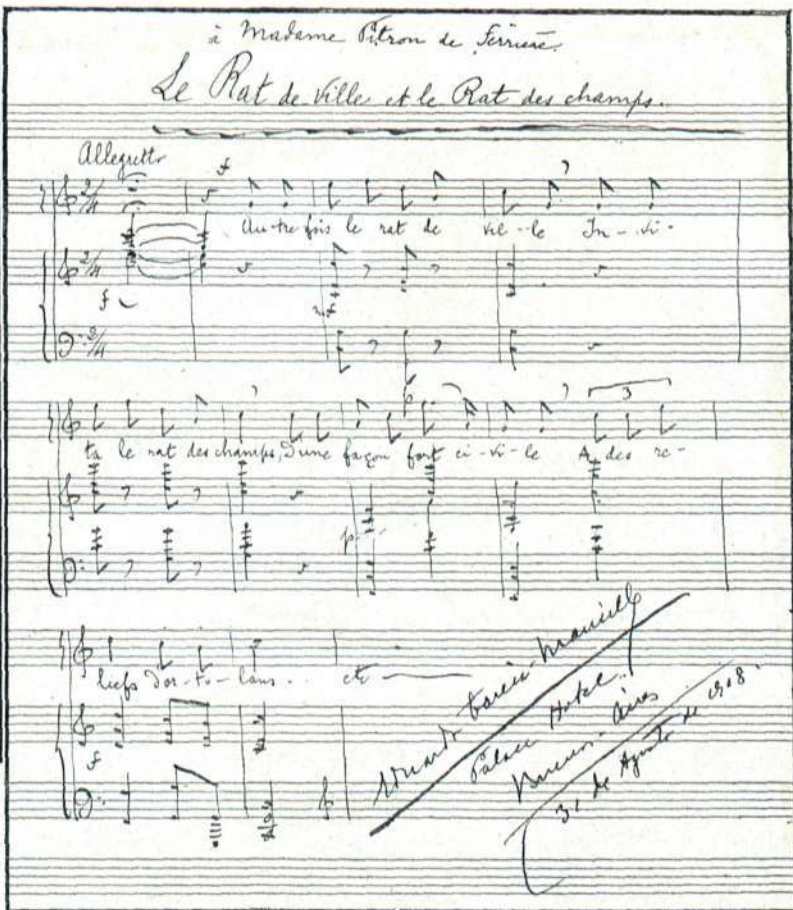 à Madame Pitron de Ferrière.
Le Rat de Ville et le Rat des champs.
Allegretto
f
2/4
Au-tre fois le rat de vil--le In--vi-
2/4
f
mf
2/4
3
ta le rat des champs, D'une façon fort ci-vi-le A des re-
p
liefs d'or-to-lans.. etc
f
Eduardo García-Mansilla
Palace Hotel.
Buenos-Aires
31 de Agosto de 1908.